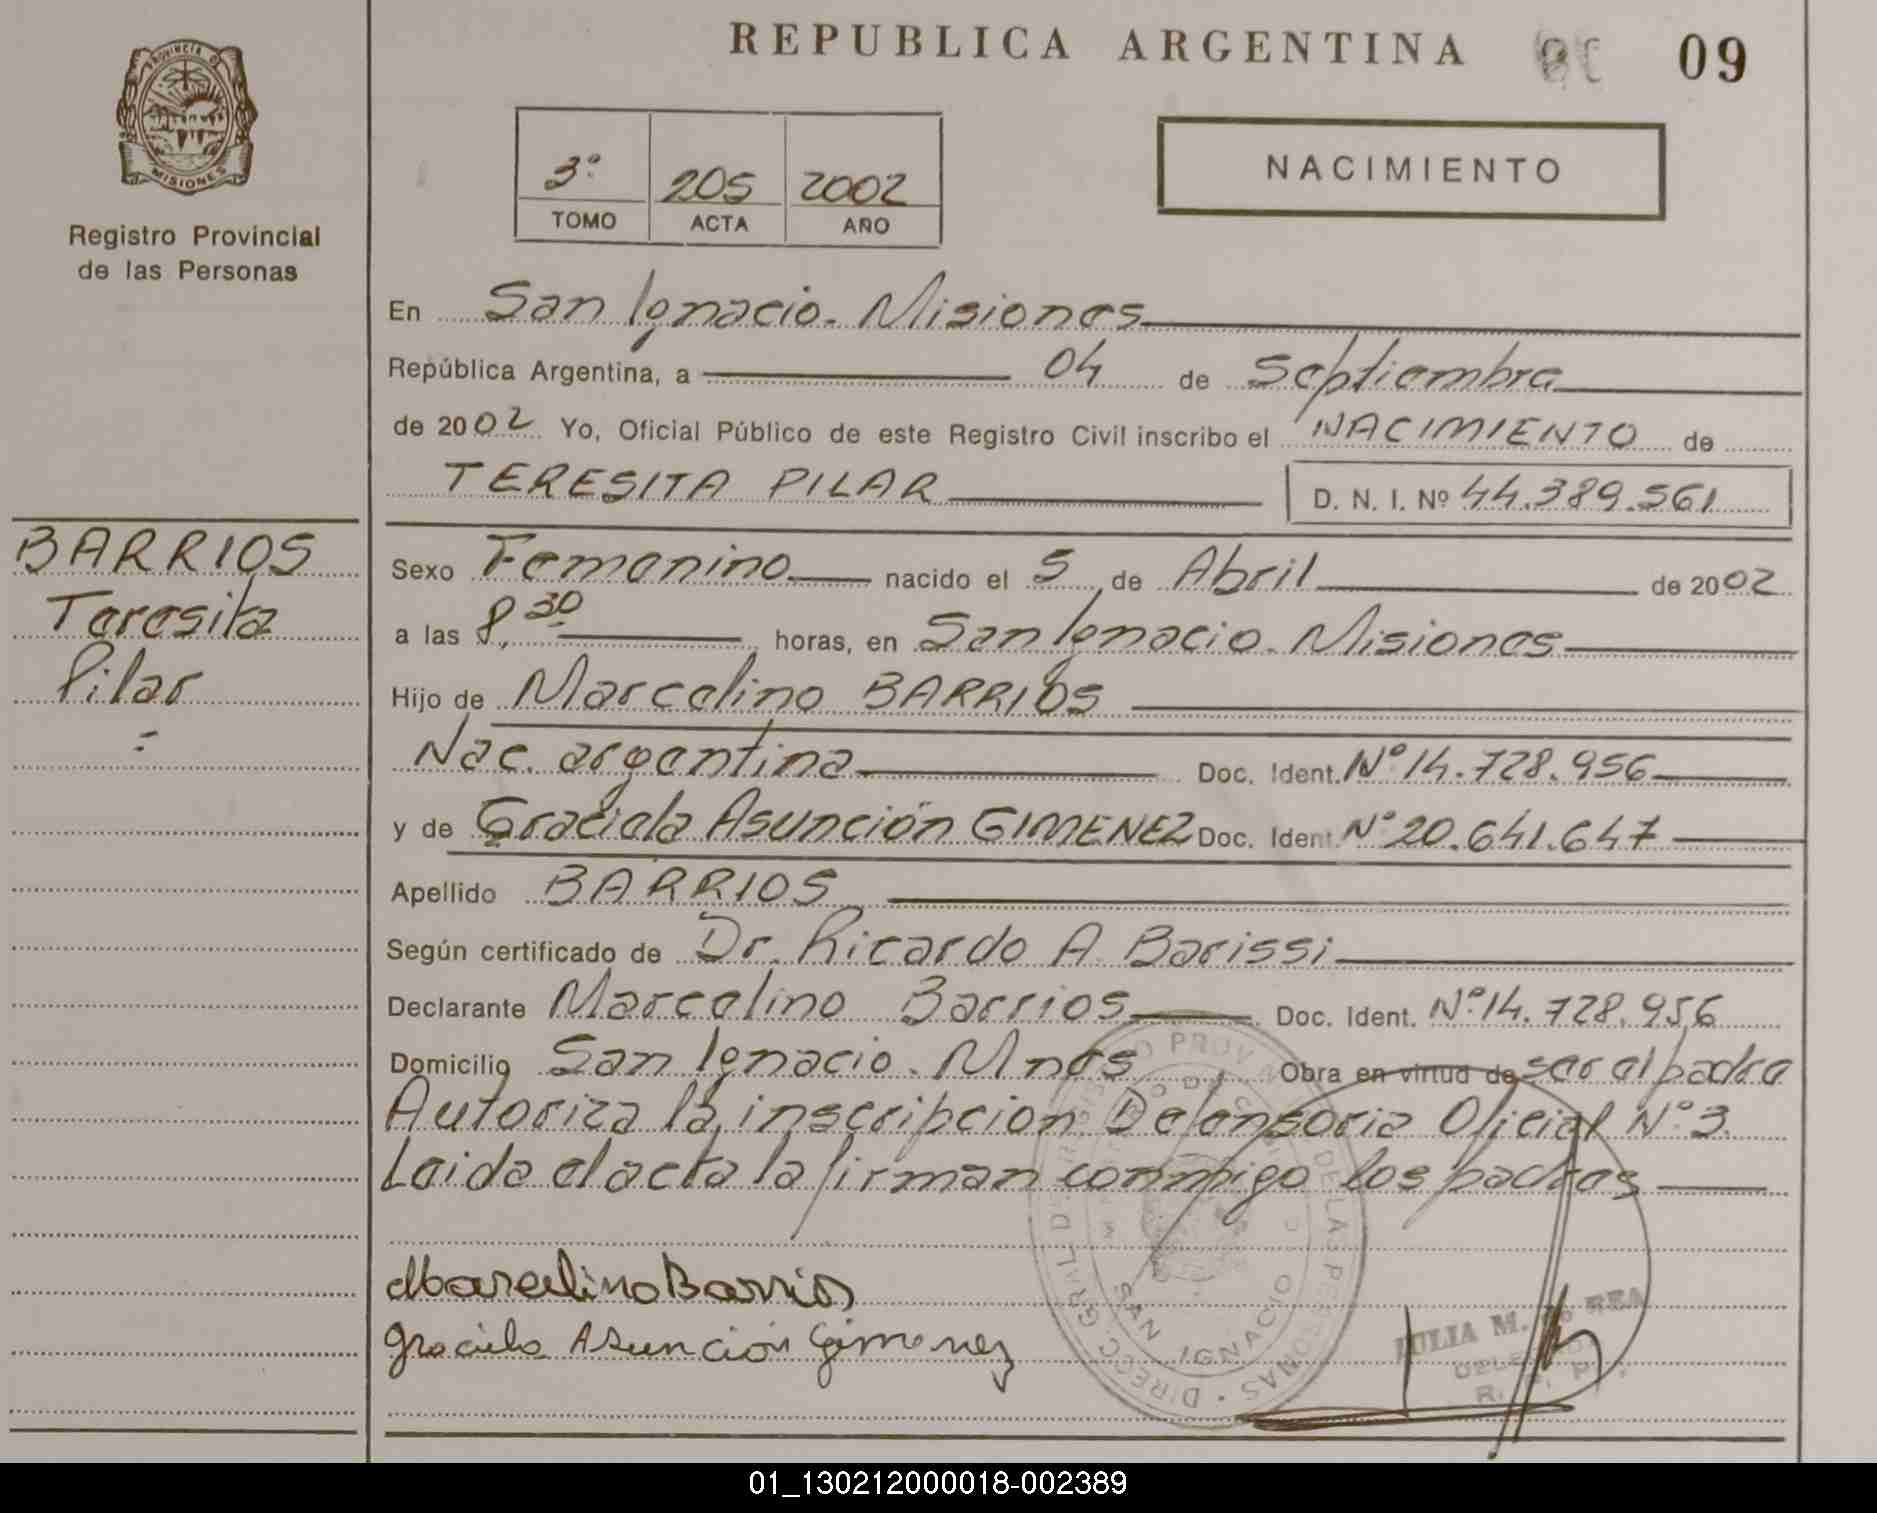 REPUBLICA ARGENTINA 09
PROVINCIA D
MISIONES
Registro Provincial
de las Personas
3º 205 2002
TOMO ACTA AÑO
NACIMIENTO
En San Ignacio - Misiones
República Argentina, a 04 de Septiembre
de 2002 Yo, Oficial Público de este Registro Civil inscribo el NACIMIENTO de
TERESITA PILAR D. N. I. Nº 44.389.561
BARRIOS
Teresita
Pilar
Sexo Femenino nacido el 5 de Abril de 2002
a las 8,30 horas, en San Ignacio - Misiones
Hijo de Marcelino BARRIOS
Nac. argentina Doc. Ident. Nº 14.728.956
y de Graciela Asunción GIMENEZ Doc. Ident. Nº 20.641.647
Apellido BARRIOS
Según certificado de Dr. Ricardo A. Barissi
Declarante Marcelino Barrios Doc. Ident. Nº 14.728.956
Domicilio San Ignacio - Mnes Obra en virtud de ser el padre
Autoriza la inscripcion Defensoria Oficial Nº 3.
Leida el acta la firman conmigo los padres
Marcelino Barrios
Graciela Asunción Gimenez
DIRECC. GRAL. DE LAS PERSONAS
SAN IGNACIO
JULIA M. de REA
01_130212000018-002389